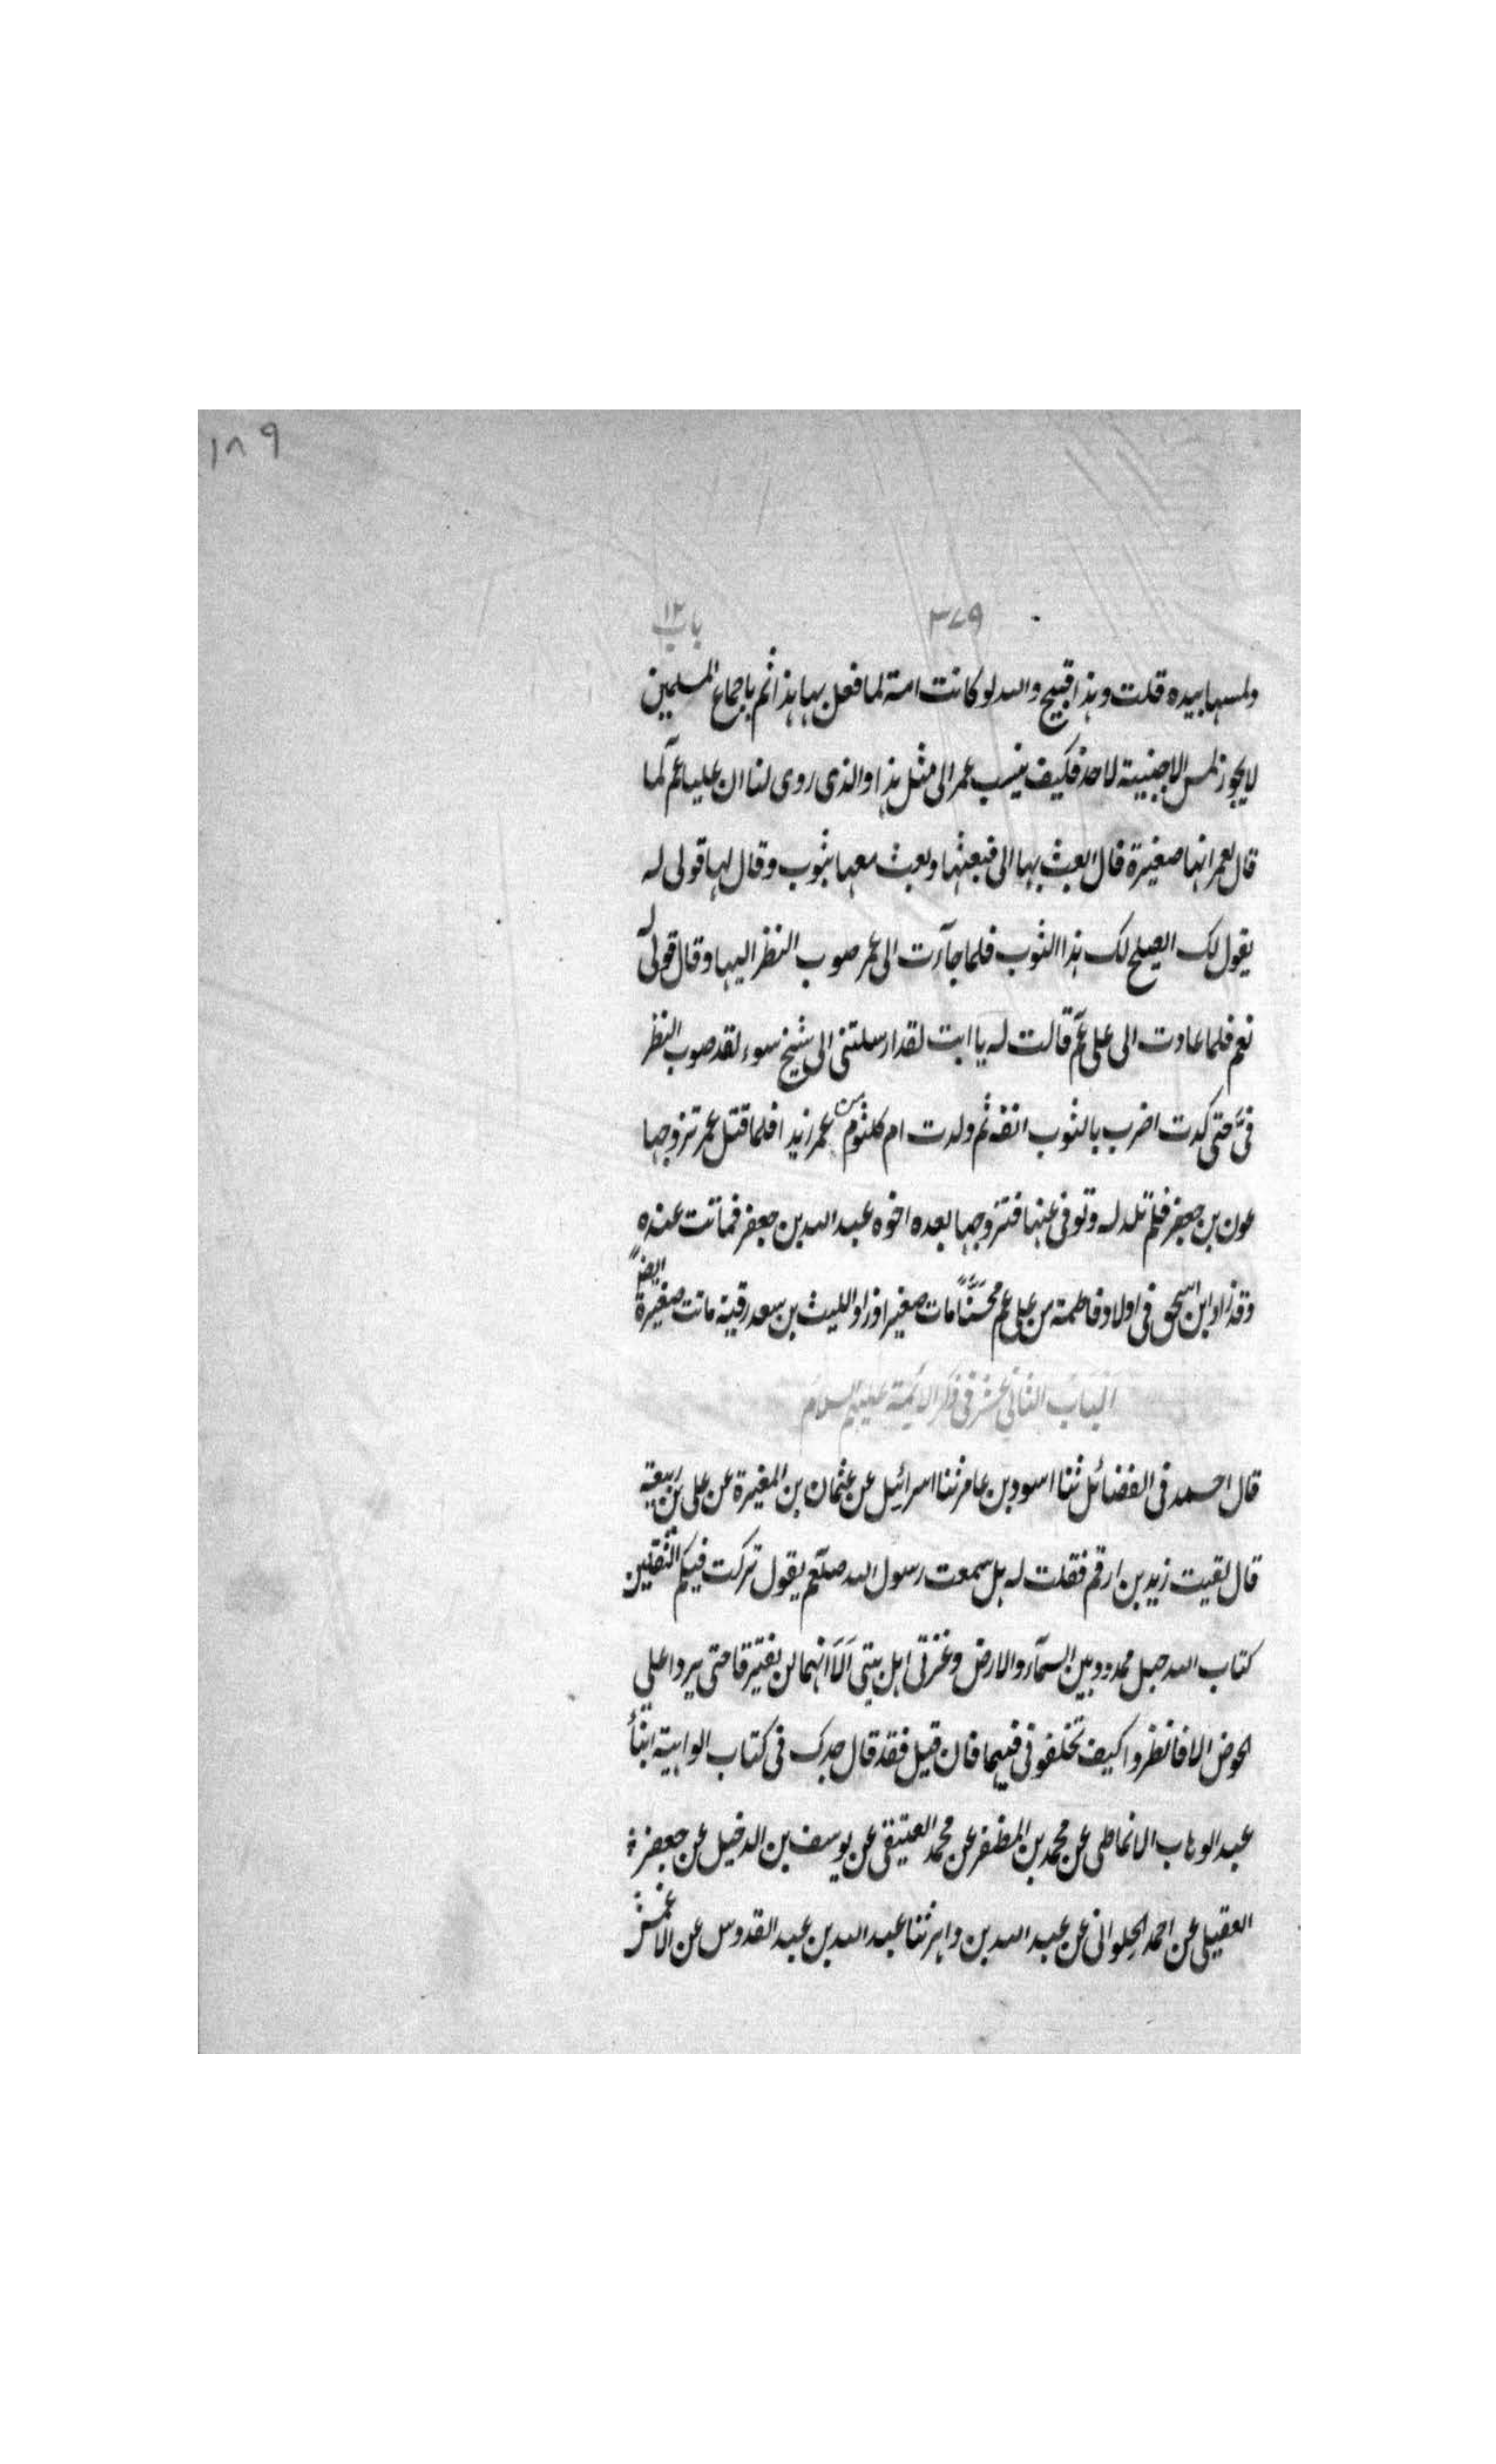 ١٨٩
٣٧٩ باب ١٢
ولمسها بيده قلت وهذا قبيح والله لو كانت امة لما فعل بها هذا ثم باجماع المسلمين
لا يجوز لمس الاجنبية لاحد فكيف ينسب عمر الى مثل هذا والذى روى لنا ان عليا عم لما
قال لعمر انها صغيرة قال ابعث بها الى فبعثها وبعث معها بثوب وقال لها قولى له
يقول لك ايصلح لك هذا الثوب فلما جآءت الى عمر صوب النظر اليها وقال قولى له
نعم فلما عادت الى على عم قالت له يا ابت لقد ارسلتنى الى شيخ سوء لقد صوب النظر
فىّ حتى كدت اضرب بالثوب انفه ثم ولدت ام كلثوم من عمر زيدا فلما قتل عمر تزوجها
عون بن جعفر فلم تلد له وتوفى عنها فتزوجها بعده اخوه عبد الله بن جعفر فماتت عنده
وقد زاد ابن اسحق فى اولاد فاطمة من على عم محسّناً مات صغيرا وزاد الليث بن سعد رقية ماتت صغيرة ايضاً
الباب الثانى عشر فى ذكر الائمة عليهم السلام
قال احمد فى الفضائل ثنا اسود بن عامر ثنا اسرائيل عن عثمان بن المغيرة عن على بن ربيعة
قال لقيت زيد بن ارقم فقلت له هل سمعت رسول الله صلعم يقول تركت فيكم الثقلين
كتاب الله حبل ممدود بين السمآء والارض وعترتى اهل بيتى اَلَا انهما لن يفترقا حتى يردا على
الحوض الا فانظروا كيف تخلفونى فيهما فان قيل فقد قال جدك فى كتاب الواهية انبأ
عبد الوهاب الانماطى عن محمد بن المظفر عن محمد العتيقى عن يوسف بن الدخيل عن جعفر
العقيلى عن احمد الحلوانى عن عبد الله بن داهر ثنا عبد الله بن عبد القدوس عن الاعمش